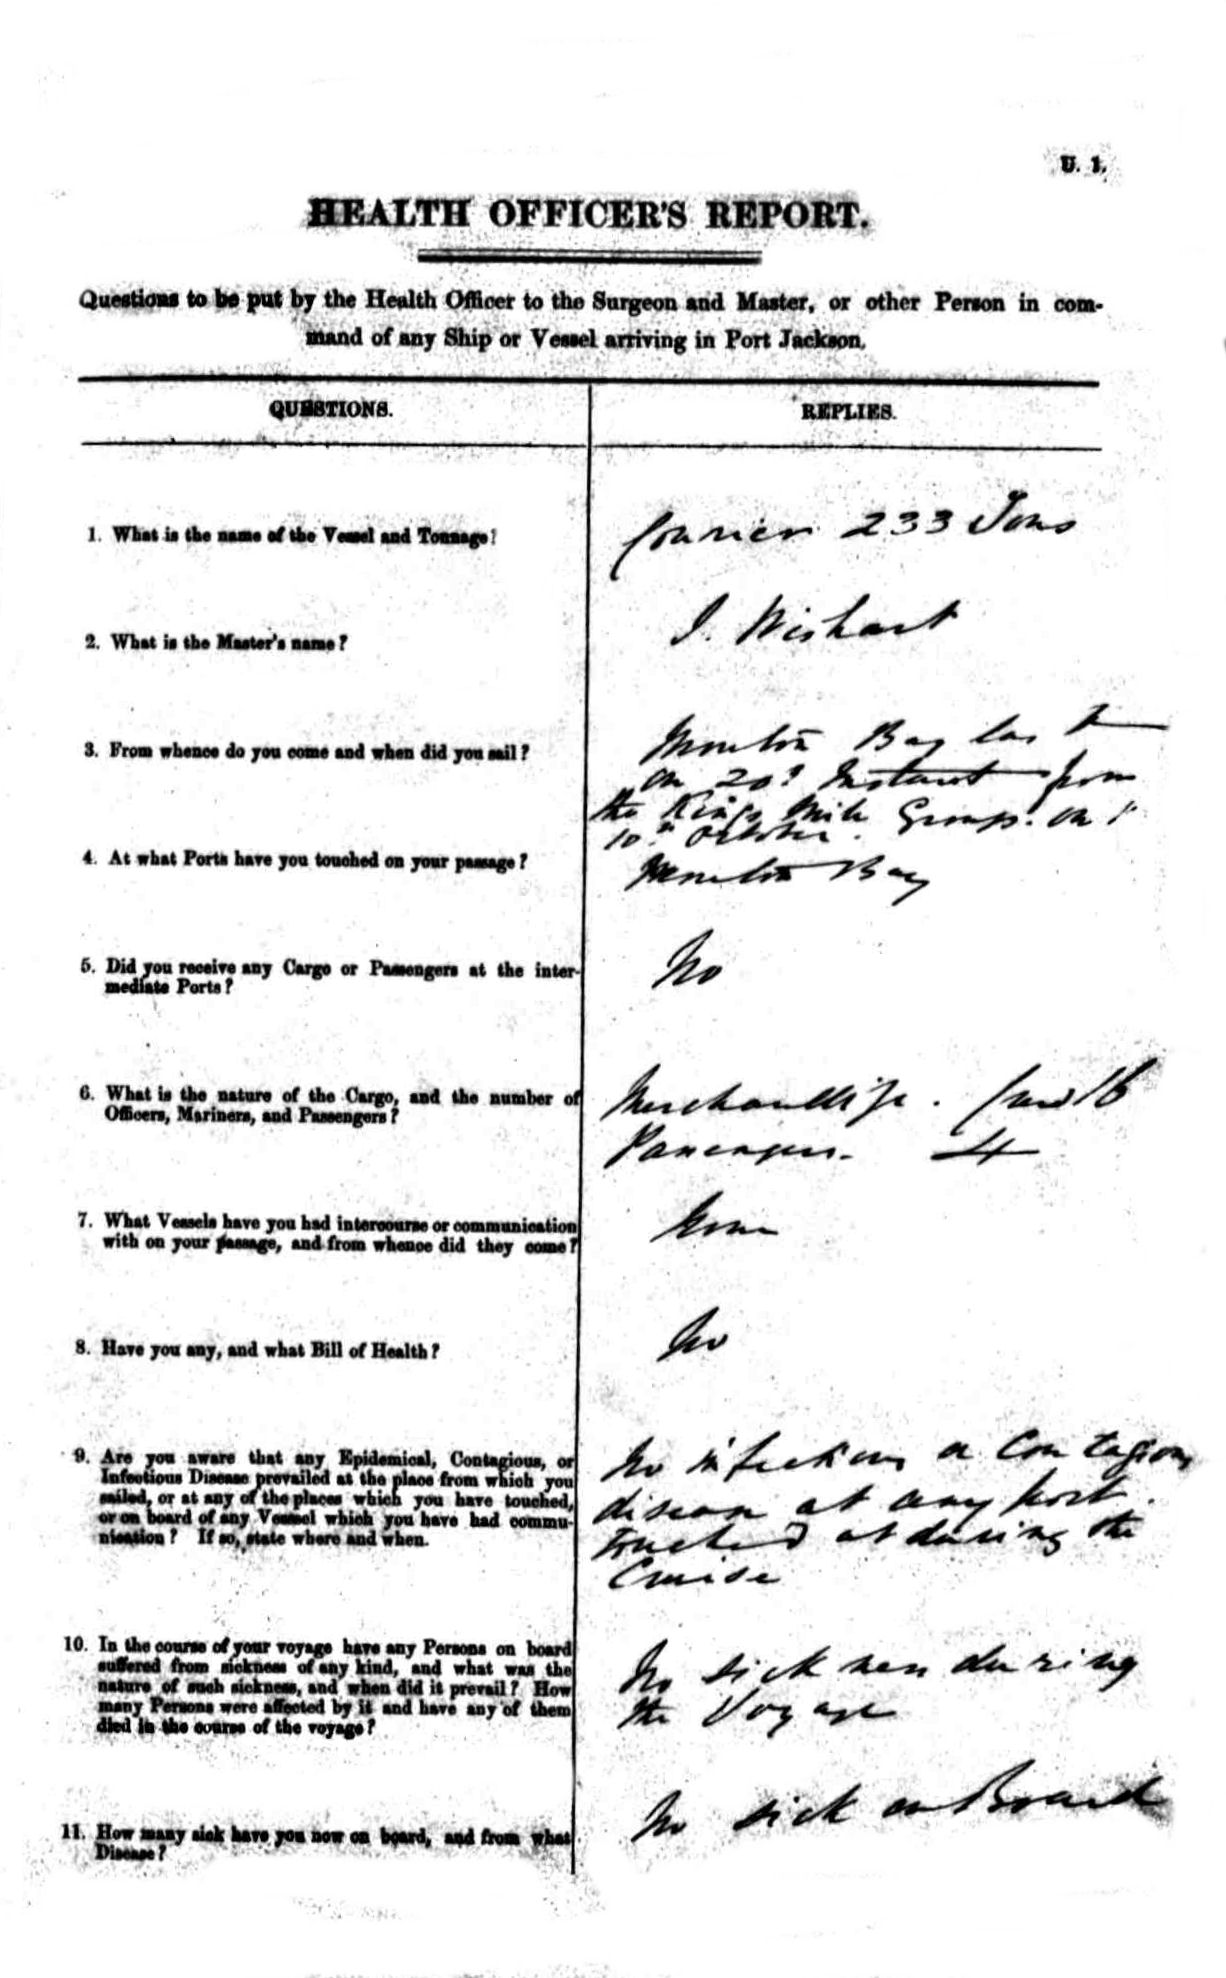 U. 1.
HEALTH OFFICER'S REPORT.
Questions to be put by the Health Officer to the Surgeon and Master, or other Person in com-
mand of any Ship or Vessel arriving in Port Jackson.
QUESTIONS.
REPLIES.
1. What is the name of the Vessel and Tonnage?
Courier 233 Tons
2. What is the Master's name?
J. Wishart
3. From whence do you come and when did you sail?
Moreton Bay
on 20th Instant from
the Kings Mile Group. on
10th October.
4. At what Ports have you touched on your passage?
Moreton Bay
5. Did you receive any Cargo or Passengers at the inter-
mediate Ports?
No
6. What is the nature of the Cargo, and the number of
Officers, Mariners, and Passengers?
Merchandise. Crew 16
Passengers. 4
7. What Vessels have you had intercourse or communication
with on your passage, and from whence did they come?
None
8. Have you any, and what Bill of Health?
No
9. Are you aware that any Epidemical, Contagious, or
Infectious Disease prevailed at the place from which you
sailed, or at any of the places which you have touched,
or on board of any Vessel which you have had commu-
nication? If so, state where and when.
No infectious or Contagious
disease at any port
touched at during the
Cruise
10. In the course of your voyage have any Persons on board
suffered from sickness of any kind, and what was the
nature of such sickness, and when did it prevail? How
many Persons were affected by it and have any of them
died in the course of the voyage?
No sickness during
the Voyage
11. How many sick have you now on board, and from what
Disease?
No sick on Board